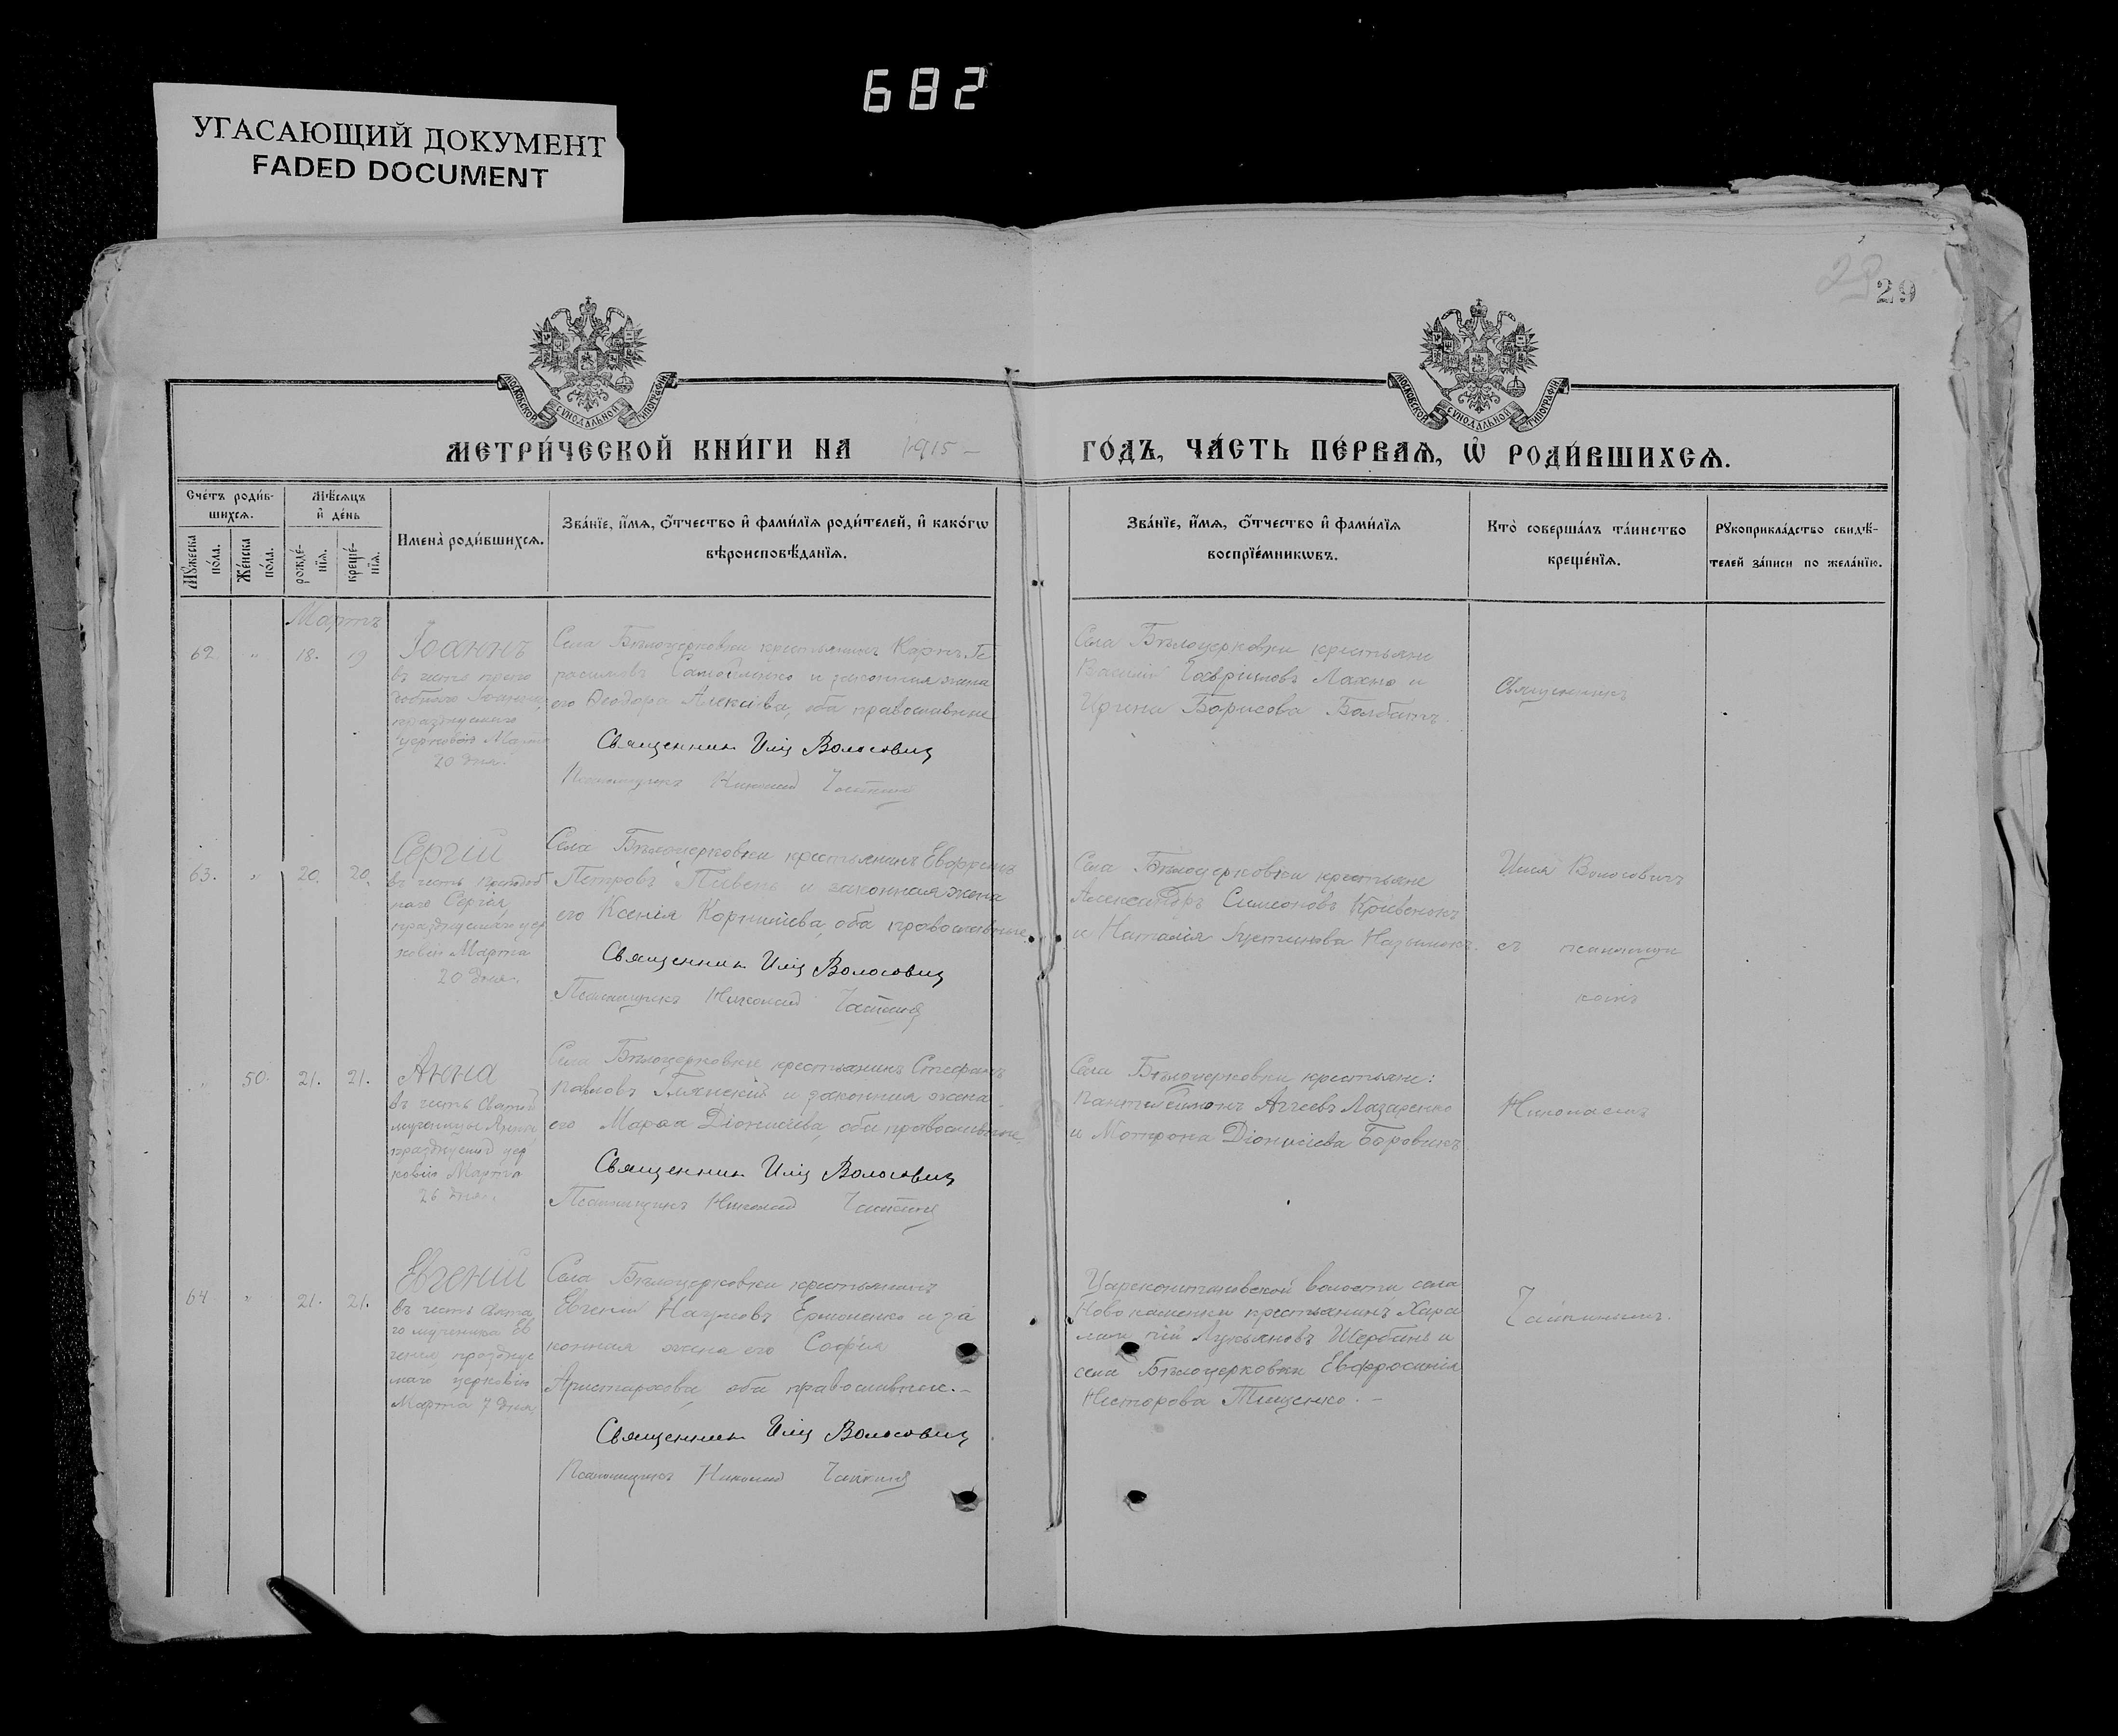 682
УГАСАЮЩИЙ ДОКУМЕНТ
FADED DOCUMENT
29
29
МОСКОВСКОЙ СѴНОДАЛЬНОЙ ТИПОГРАФІИ
МОСКОВСКОЙ СѴНОДАЛЬНОЙ ТИПОГРАФІИ
МЕТРИ́ЧЕСКОЙ КНИ́ГИ НА 1915 –
ГО́ДЪ, ЧА́СТЬ ПЕ́РВАѦ, Ѡ҆ РОДИ́ВШИХСѦ.
Сче́тъ роди́в-
шихсѧ.
Мѣ́сѧцъ
и҆ де́нь
Мꙋ́жеска
по́ла.
Же́нска
по́ла.
рожде́-
нїѧ.
креще́-
нїѧ.
Имена̀ роди́вшихсѧ.
Зва́нїе, и҆́мѧ, ѻ҆́тчество и҆ фами́лїѧ роди́телей, и҆ како́гѡ
вѣроисповѣ́данїѧ.
Зва́нїе, и҆́мѧ, ѻ҆́тчество и҆ фами́лїѧ
воспрїе́мникѡвъ.
Кто̀ соверша́лъ та́инство
креще́нїѧ.
Рꙋкоприкла́дство свидѣ́-
телей за́писи по жела́нїю.
Мартъ
62. " 18. 19
Іоаннъ
въ честь препо
добнаго Іоанна,
празднуемаго
церковію Марта
20 дня.
Села Бѣлоцерковки крестьянинъ Карпъ Ге
расимовъ и законная жена
его Ѳеодора Алексіева, оба православные
Священник Илія Волосович
Псаломщикъ Николай Чайкинъ
Села Бѣлоцерковки крестьяне
Василій Гавріиловъ Лахно и
Ирина Борисова Болбатъ.
Священникъ
63. " 20. 20.
Сергій
въ честь преподоб
наго Сергія,
празднуемаго цер
ковію Марта
20 дня.
Села Бѣлоцерковки крестьянинъ
Петровъ Пивень и законная жена
его Ксенія Корнилієва, оба православные.
Священник Илія Волосович
Псаломщикъ Николай Чайкинъ
Села Бѣлоцерковки крестьяне
Александръ Симеоновъ Кривенокъ
и Наталія Іустинова
Илія Волосовичъ
съ псаломщи
комъ
" 50. 21. 21.
Анна
въ честь святой
мученицы Анны
празднуемой цер
ковію Марта
26 дня.
Села Бѣлоцерковки крестьянинъ Стефанъ
Павловъ и законная жена
его Марѳа Діонисіева, оба православные.
Священник Илія Волосович
Псаломщикъ Николай Чайкинъ
Села Бѣлоцерковки крестьяне:
Пантелеимонъ Аггеевъ Лазаренко
и Мотрона Діонисіева Боровикъ
Николаемъ
64 " 21. 21.
Евгеній
въ честь свята
го мученика Ев
генія празднуе
маго церковію
Марта 7 дня
Села Бѣлоцерковки крестьянинъ
Евгеній Наумовъ Ермоленко и за
конная жена его Софія
Аристархова, оба православные.–
Священник Илія Волосович
Псаломщикъ Николай Чайкинъ
Цареконстантиновской волости села
крестьянинъ Хара
лам пій Лукьяновъ Щербань и
села Бѣлоцерковки Евфросинія
Несторова Тищенко. –
Чайкинымъ.